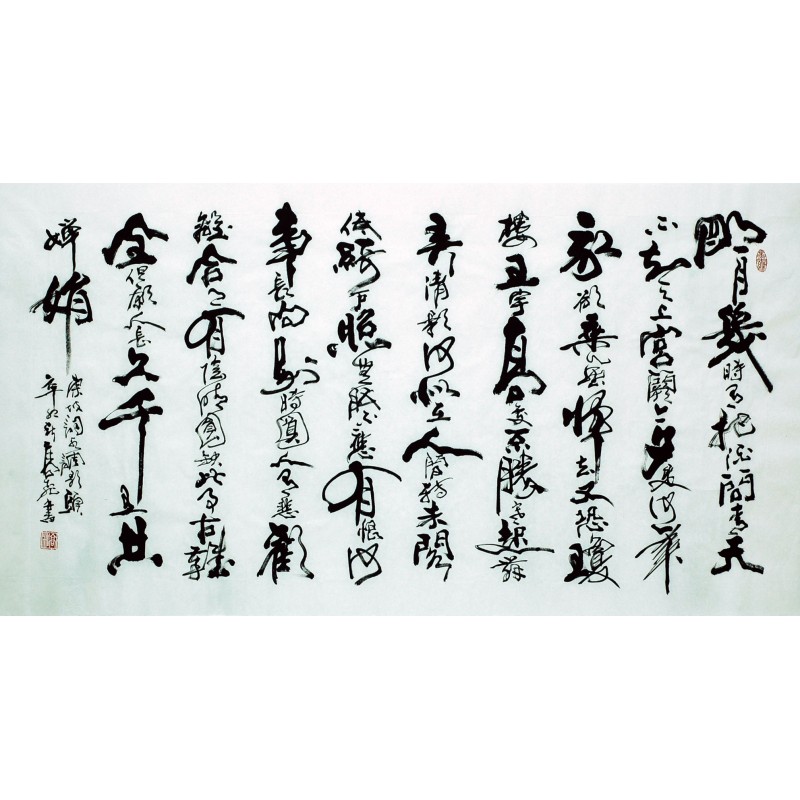 明月幾時有把酒問青天
不知天上宮闕今夕是何年
我欲乘風歸去又恐瓊
樓玉宇高處不勝寒起舞
弄清影何似在人間轉朱閣
低綺戶照無眠不應有恨何
事長向別時圓人有悲歡
離合月有陰晴圓缺此事古難
全但願人長久千里共
嬋娟
東坡詞水調歌頭
辛卯書